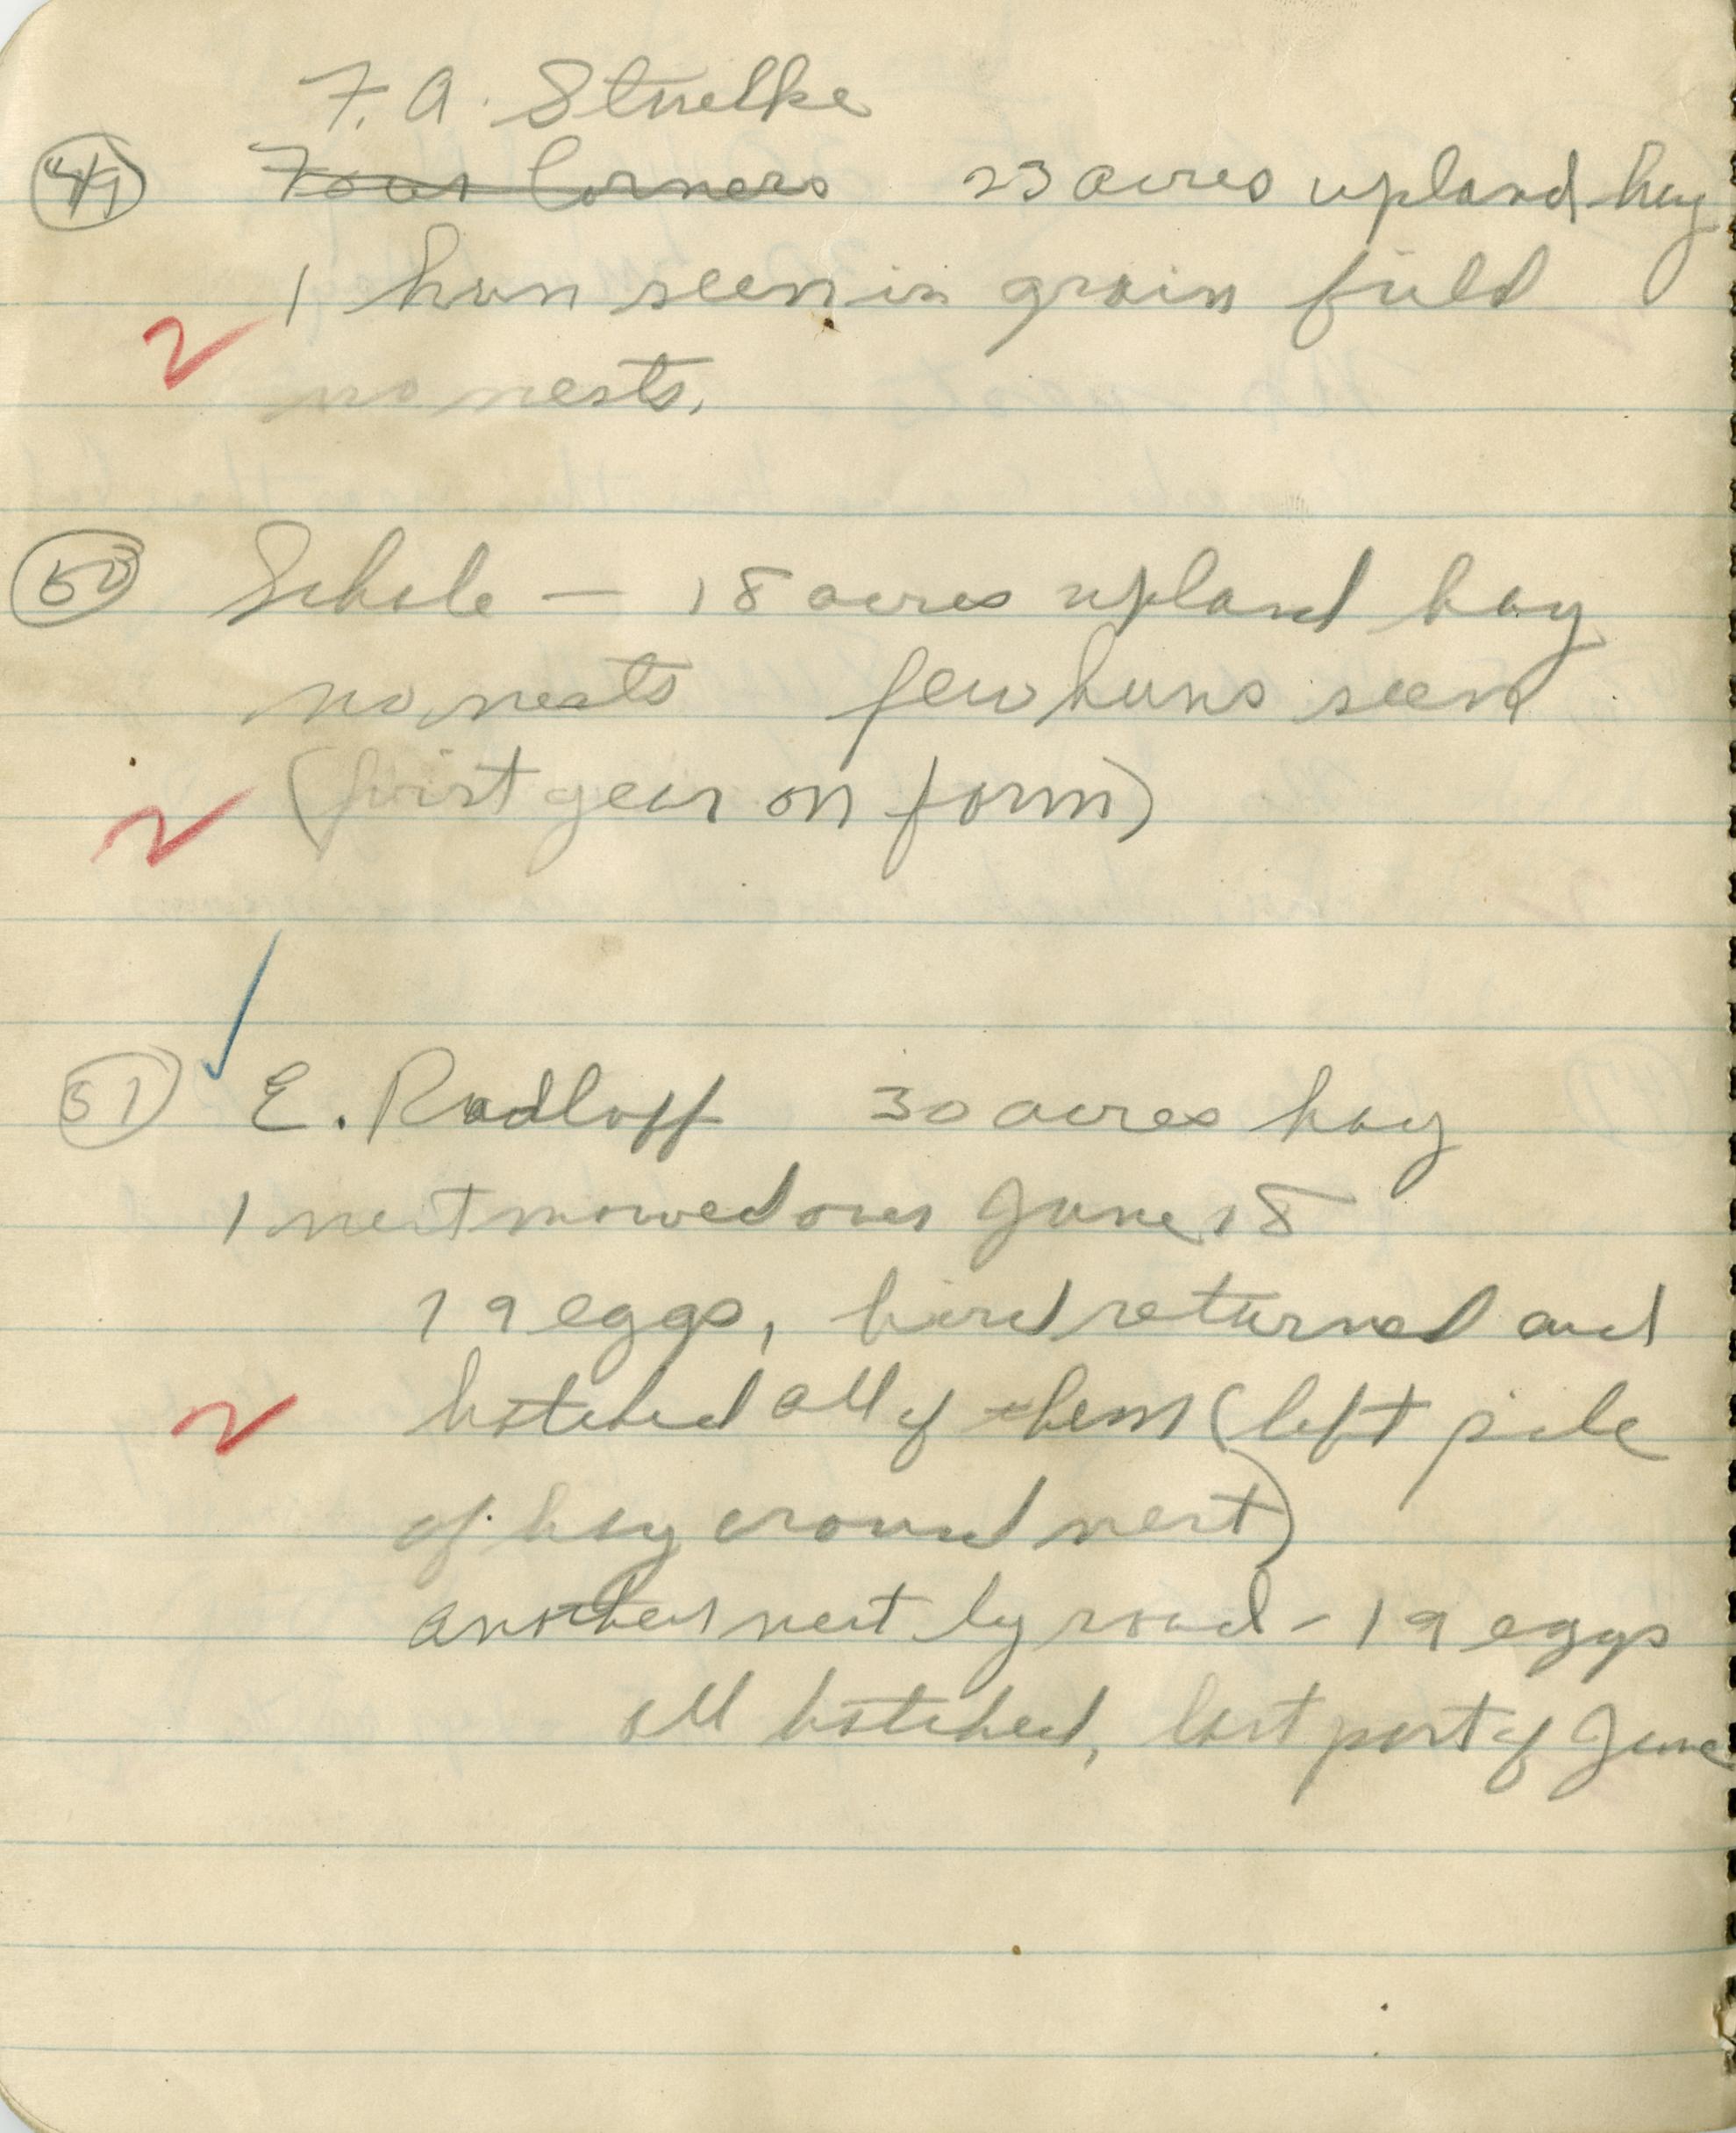 F. A. Stuelke
49 Four Corners 23 acres upland hay
1 hun seen in grain field
no nests.
50 Schele — 18 acres upland hay
no nests few huns seen
(first year on farm)
51 E. Radloff 30 acres hay
1 nest mowed over June 18
19 eggs, bird returned and
hatched all of them (left pile
of hay around nest)
another nest by road - 19 eggs
all hatched, last part of June